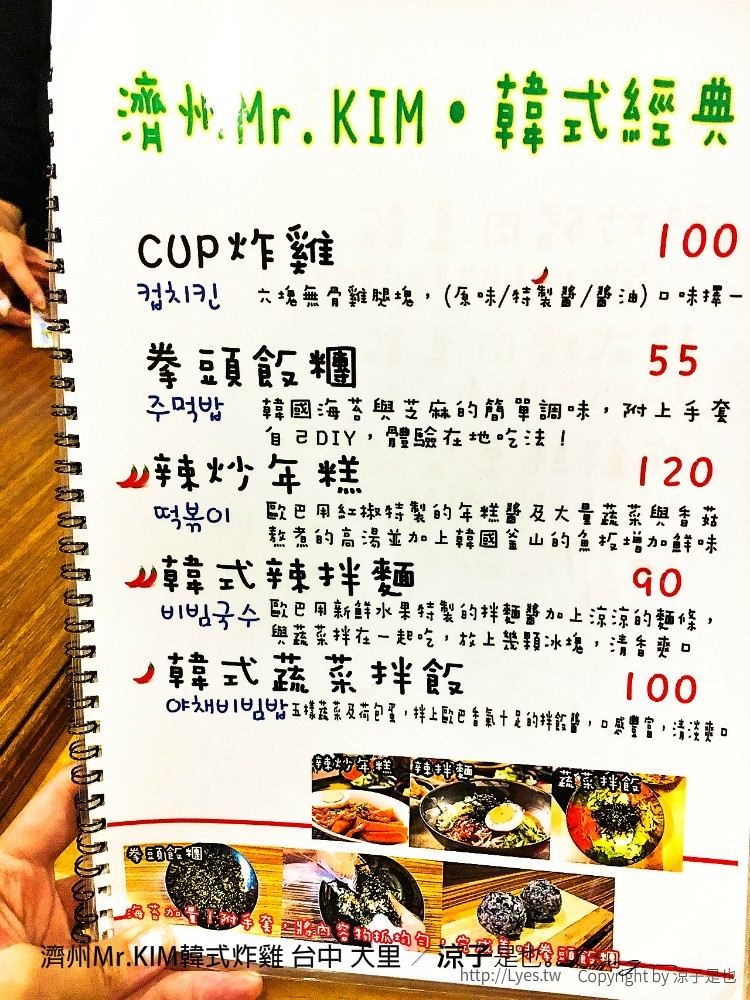 濟州Mr.KIM•韓式經典
CUP炸雞 100
컵치킨 六塊無骨雞腿塊,(原味/特製醬/醬油)口味擇一
拳頭飯糰 55
주먹밥 韓國海苔與芝麻的簡單調味,附上手套
自己DIY,體驗在地吃法!
辣炒年糕 120
떡볶이 歐巴用紅椒特製的年糕醬及大量蔬菜與香菇
熬煮的高湯並加上韓國釜山的魚板增加鮮味
韓式辣拌麵 90
비빔국수 歐巴用新鮮水果特製的拌麵醬加上涼涼的麵條,
與蔬菜拌在一起吃,放上幾顆冰塊,清香爽口
韓式蔬菜拌飯 100
야채비빔밥 五樣蔬菜及荷包蛋,拌上歐巴香氣十足的拌飯醬,口感豐富,清淡爽口
辣炒年糕 辣拌麵 蔬菜拌飯
拳頭飯糰
海苔加量!附手套,將內容物抓均勻,完成美味拳頭飯糰
濟州Mr.KIM韓式炸雞 台中 大里 / 涼子是也。
http://Lyes.tw Copyright by 涼子是也